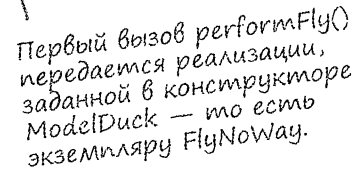 Первый вызов performFly()
передается реализации,
заданной в конструкторе
ModelDuck — то есть
экземпляру FlyNoWay.